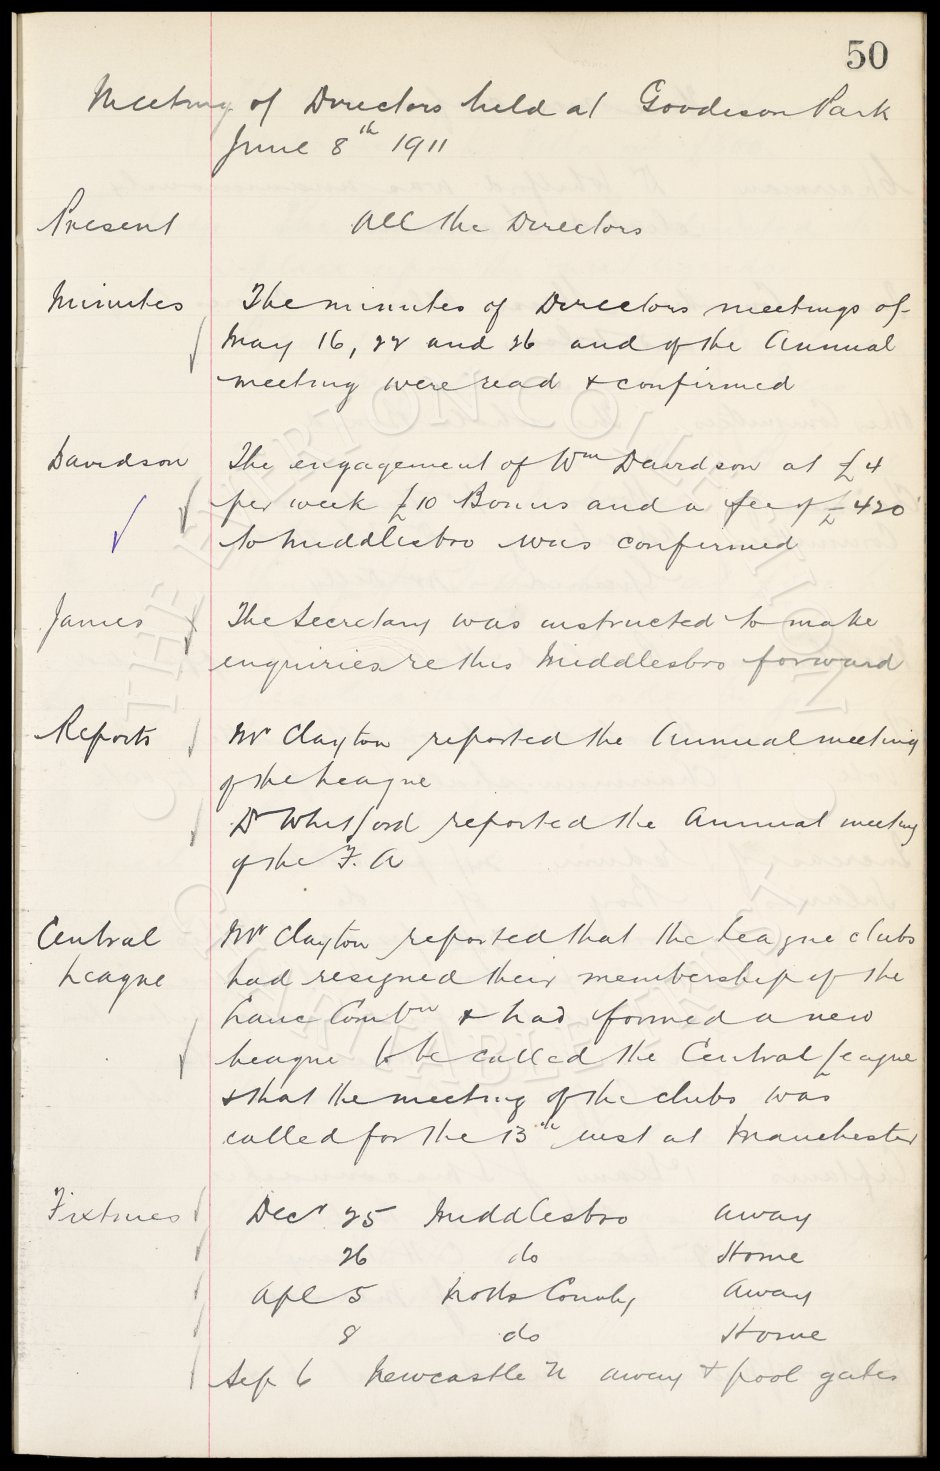 50
Meeting of Directors held at Goodison Park
June 8th 1911
Present All the Directors
Minutes The minutes of Directors meetings of
May 16, 22 and 26 and of the Annual
meeting were read & confirmed
Davidson The engagement of Wm Davidson at £4
per week £10 Bonus and a fee of £420
to Middlesbro was confirmed
James The Secretary was instructed to make
enquiries re this Middlesbro forward
Reports Mr Clayton reported the Annual meeting
of the League
Dr Whitford reported the Annual meeting
of the F. A
Central Mr Clayton reported that the League clubs
League had resigned their membership of the
Lanc Combn & had formed a new
League to be called the Central League
& that the meeting of the clubs was
called for the 13th inst at Manchester
Fixtures Decr 25 Middlesbro away
26 do Home
Apl 5 Notts County Away
8 do Home
Sep 6 Newcastle U away & pool gates